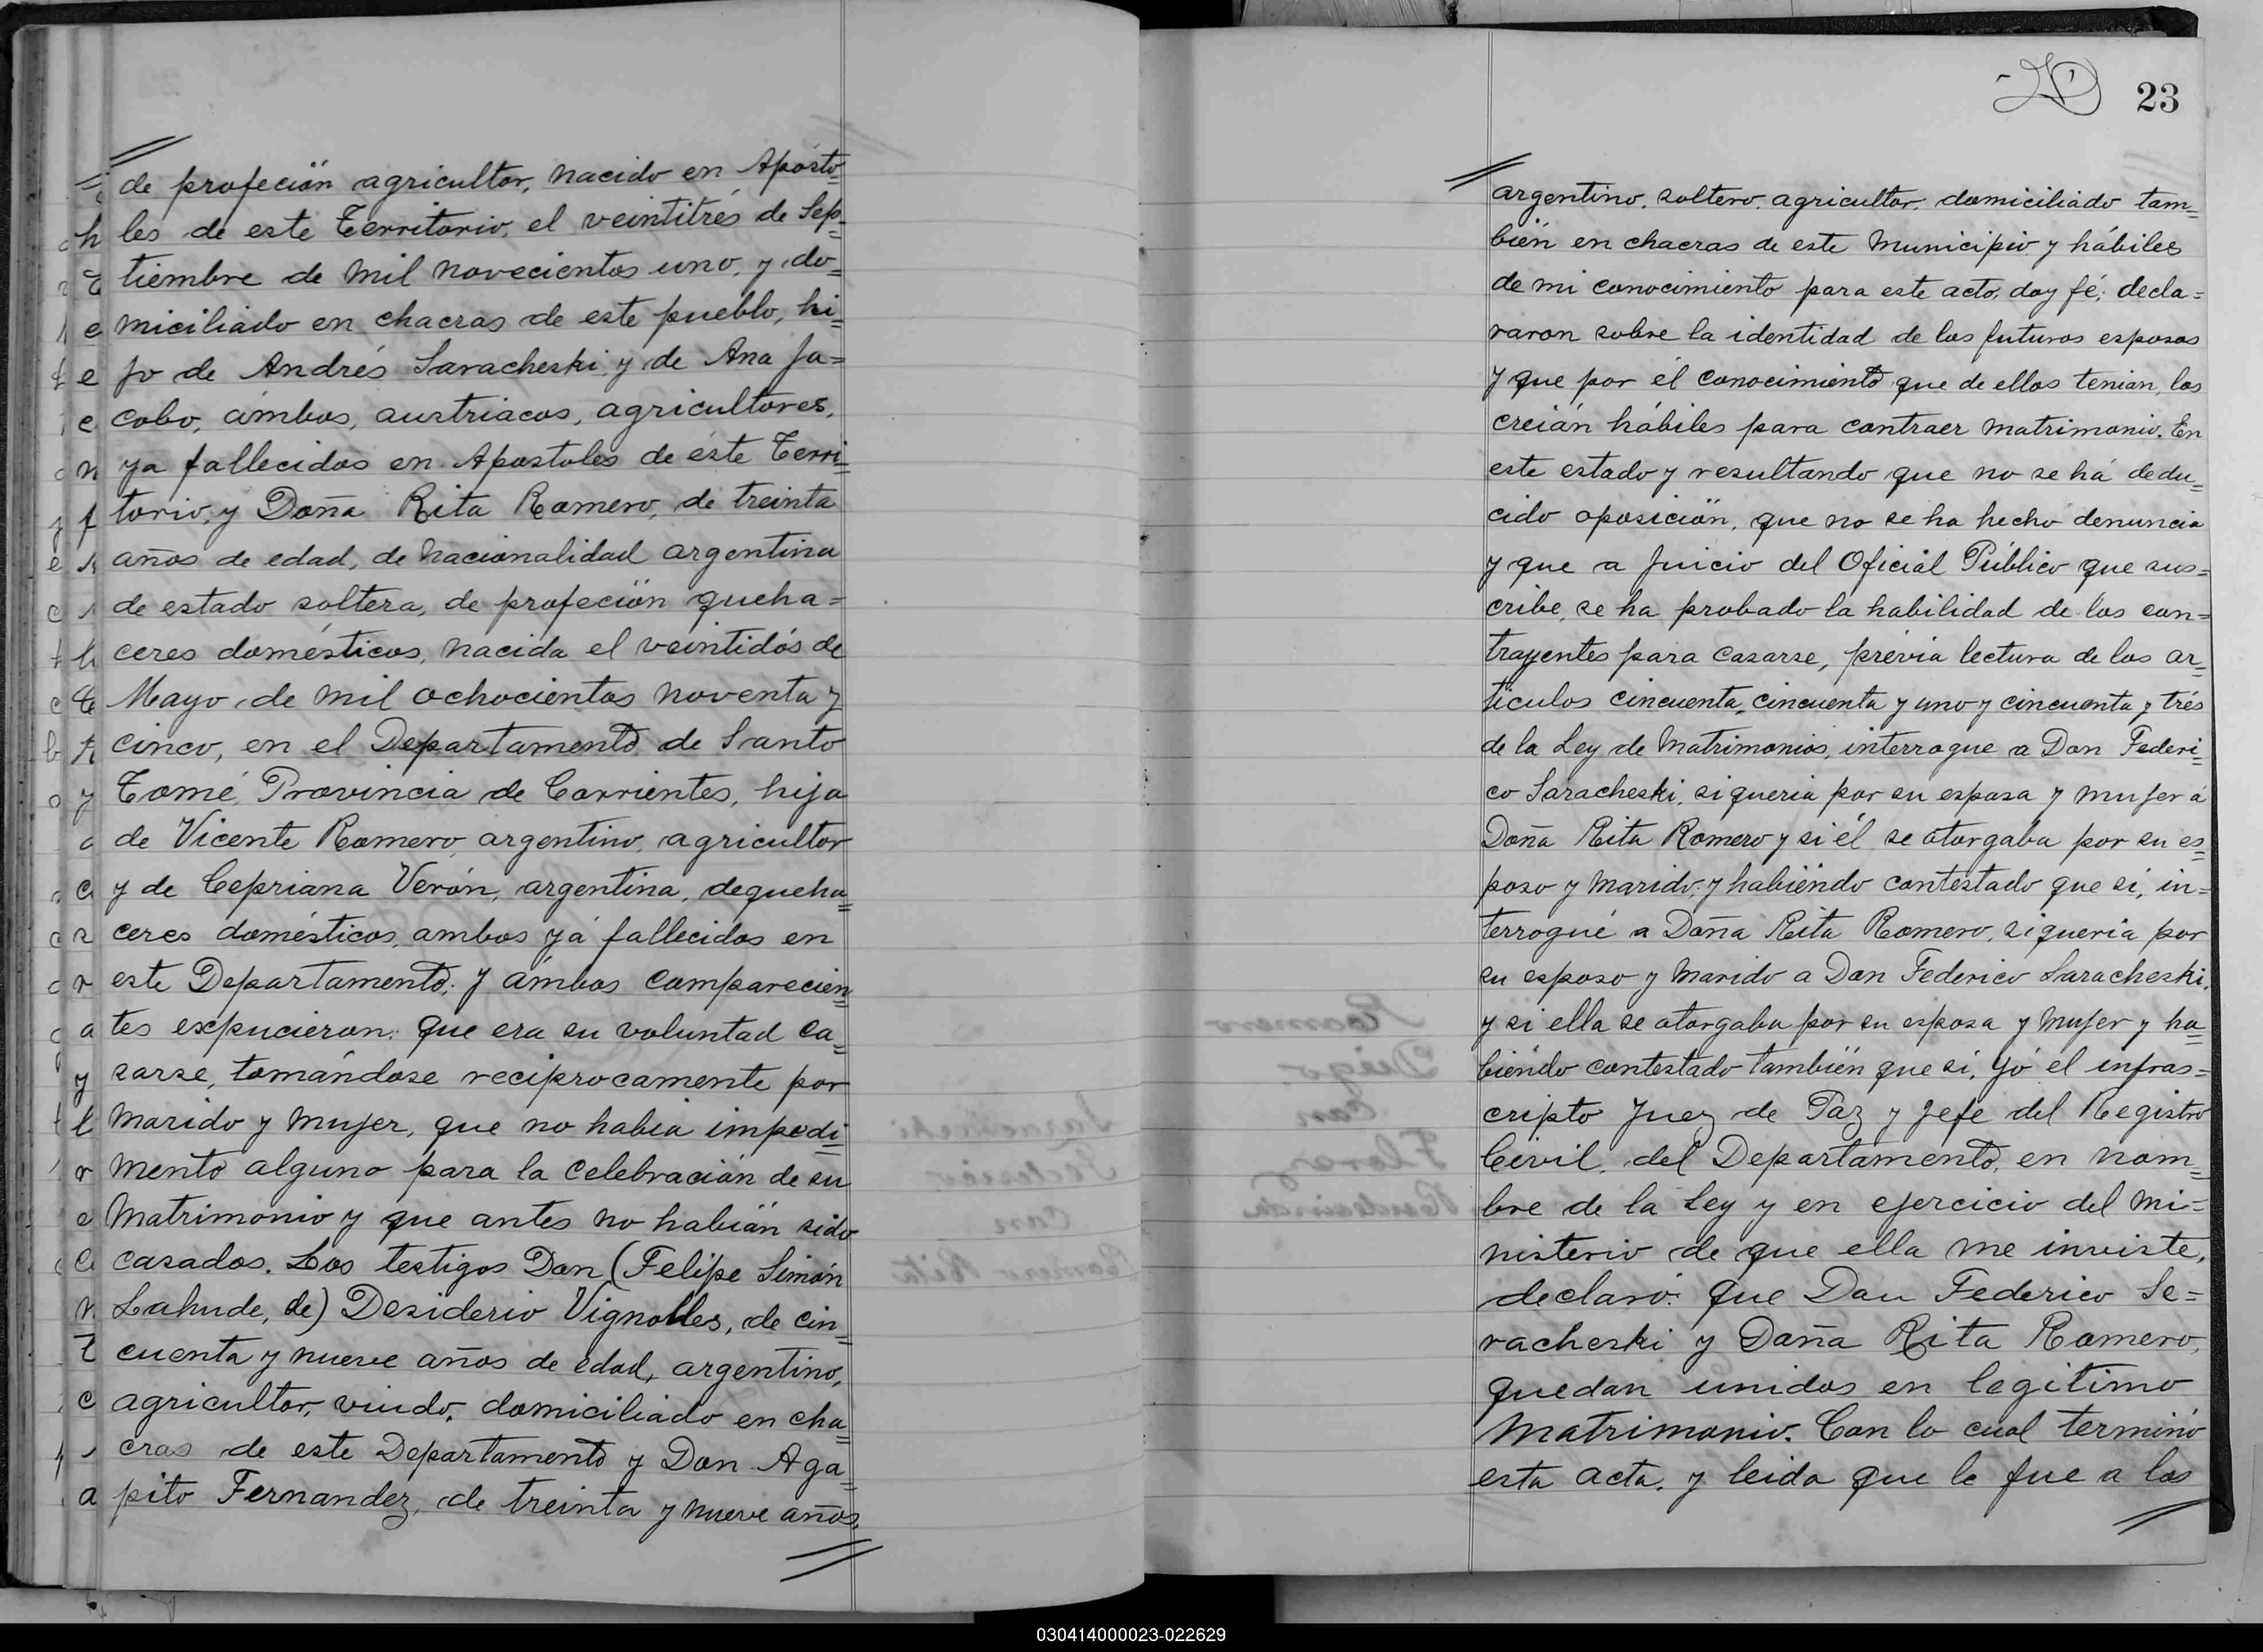 de profeción agricultor, nacido en Apósto=
les de este Territorio, el veintitrés de Sep=
tiembre de mil novecientos uno, y do=
miciliado en chacras de este pueblo, hi=
jo de Andrés Saracheski y de Ana Ja=
cobo, ámbos, austriacos, agricultores,
ya fallecidos en Apostoles de éste Terri=
torio, y Doña Rita Romero, de treinta
años de edad, de nacionalidad argentina
de estado soltera, de profeción queha=
ceres domésticos, nacida el veintidós de
Mayo de mil ochocientos noventa y
cinco, en el Departamento de Santo
Tomé, Provincia de Corrientes, hija
de Vicente Romero, argentino, agricultor
y de Cepriana Verón, argentina, dequeha=
ceres domésticos, ambos yá fallecidos en
este Departamento; y ámbos comparecien=
tes expucieron: que era su voluntad ca=
sarse, tomándose reciprocamente por
marido y mujer, que no habia impedi=
mento alguno para la celebración de su
matrimonio y que antes no habián sido
casados. Los testigos Don (Felipe Simón
Lahude, de) Desiderio Vignolles, de cin=
cuenta y nueve años de edad, argentino,
agricultor, viudo, domiciliado en cha=
cras de este Departamento y Don Aga=
pito Fernandez, de treinta y nueve años,
23
argentino, soltero, agricultor, domiciliado tam=
bién en chacras de este Municipio y hábiles
de mi conocimiento para este acto, doy fé; decla=
raron sobre la identidad de los futuros esposos
y que por el conocimiento que de ellos tenian, los
creián hábiles para contraer matrimonio. En
este estado y resultando que no se há dedu=
cido oposición, que no se ha hecho denuncia
y que a juicio del Oficial Público que sus=
cribe, se ha probado la habilidad de los con=
trayentes para casarse, prévia lectura de los ar=
ticulos cincuenta, cincuenta y uno y cincuenta y trés
de la Ley de Matrimonios, interrogue a Don Federi=
co Saracheski, si queria por su esposa y mujer á
Doña Rita Romero y si él se otorgaba por su es=
poso y marido; y habiéndo contestado que si, in=
terrogué a Doña Rita Romero, si queria por
su esposo y marido a Don Federico Saracheski,
y si ella se otorgaba por su esposa y mujer y ha=
biéndo contestado también que si, Yó el infras=
cripto Juez de Paz y Jefe del Registro
Civil, del Departamento, en nom=
bre de la Ley y en ejercicio del mi=
nisterio de que ella me inviste,
declaró: que Don Federico Se=
racheski y Doña Rita Romero,
quedan unidos en legitimo
matrimonio. Con lo cual terminó
esta acta, y leida que le fue a los
030414000023-022629